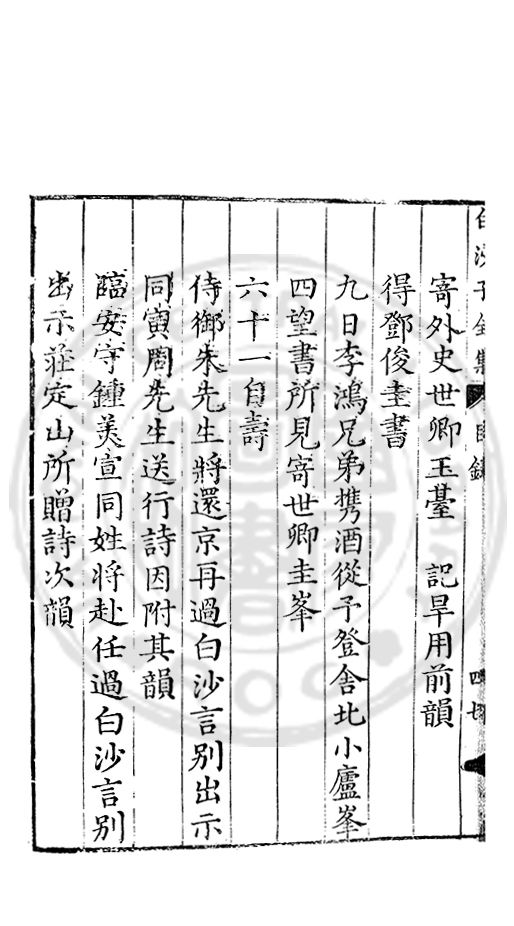 白沙子全集 目錄 四七
寄外史世卿玉臺 記旱用前韻
得鄧俊圭書
九日李鴻兄弟携酒從予登舍北小廬峯
四望書所見寄世卿圭峯
六十一自壽
侍御朱先生將還京再過白沙言別出示
同寅周先生送行詩因附其韻
臨安守鍾美宣同姓將赴任過白沙言別
出示莊定山所贈詩次韻